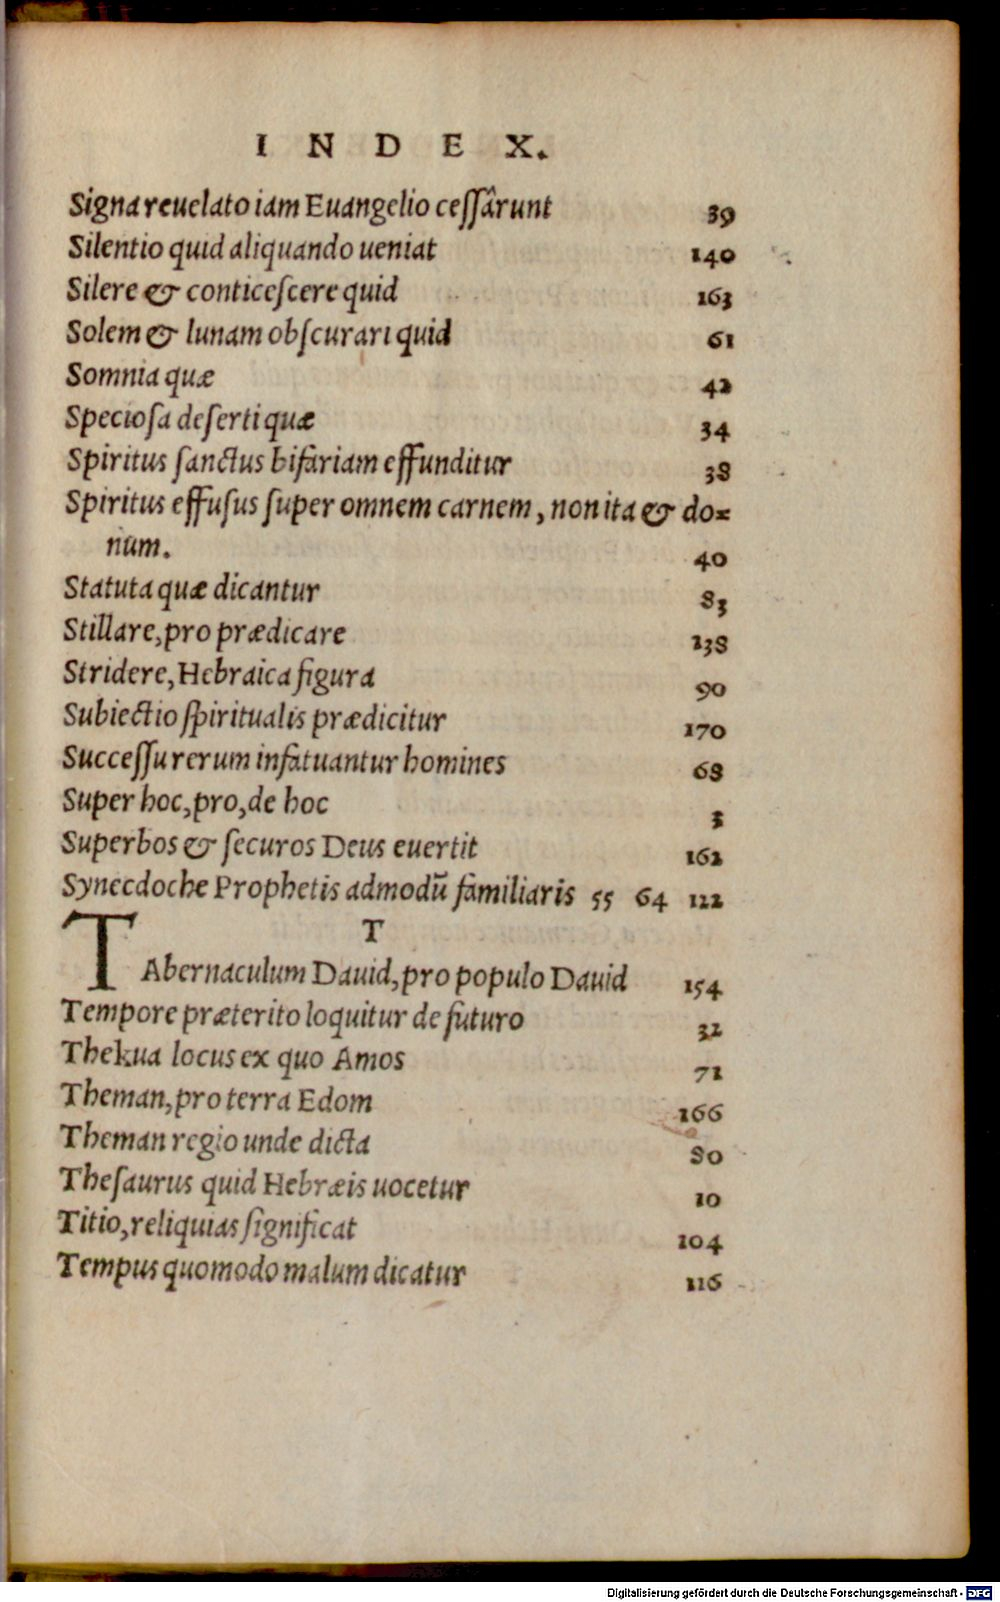 I N D E X.
Signa reuelato iam Euangelio ceſſârunt 39
Silentio quid aliquando ueniat 140
Silere & conticeſcere quid 163
Solem & lunam obſcurari quid 61
Somnia quæ 42
Specioſa deſerti quæ 34
Spiritus ſanctus bifariam effunditur 38
Spiritus effuſus ſuper omnem carnem, non ita & do=
num. 40
Statuta quæ dicantur 83
Stillare, pro prædicare 138
Stridere, Hebraica figura 90
Subiectio ſpiritualis prædicitur 170
Succeſſu rerum infatuantur homines 68
Super hoc, pro, de hoc 3
Superbos & ſecuros Deus euertit 162
Synecdoche Prophetis admodū familiaris 55 64 122
T
TAbernaculum Dauid, pro populo Dauid 154
Tempore præterito loquitur de futuro 32
Thekua locus ex quo Amos 71
Theman, pro terra Edom 166
Theman regio unde dicta 80
Theſaurus quid Hebræis uocetur 10
Titio, reliquias ſignificat 104
Tempus quomodo malum dicatur 116
Digitalisierung gefördert durch die Deutsche Forschungsgemeinschaft - DFG